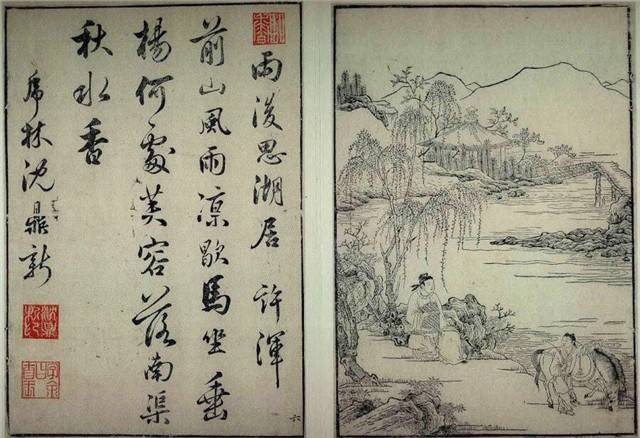 雨後思湖居 許渾
前山風雨凉歇馬坐垂
楊何處芙容落南渠
秋水香
虎林沈鼎新
六